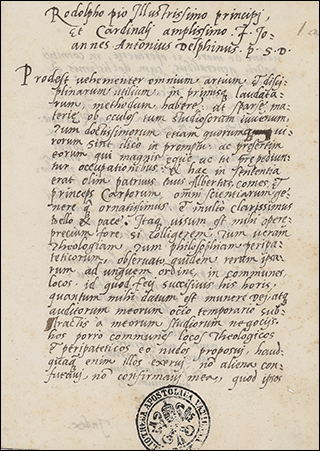 Rodolpho pio Illustrissimo principi,
Et Cardinali amplissimo .F. Jo-
annes Antonius Delphinus. p. S. D.
Prodest vehementer omnium artium & disci-
plinarum utilium, in primisq laudata-
rum, methodum habere: at sparse ma-
terie ob oculos tum studiosorum iuvenum,
Tum doctissimorum etiam quorum
rorum sint ilico in promptu: ac presertim
eorum qui magnis eque ac tu prepedun-
tur occupationibus: & hac in sententia
erat olim patruus tuus Albertus, comes &
princeps Carporum, omni literarum ge-
nere q ornatissimus, & multo clarissimus
bello & pace. Itaq visum est mihi opere-
precium fore, si colligerem Tum veram
Theologiam, Tum philosophiam peripa-
teticorum, observato quidem rerum ipsa-
rum ad unguem ordine, in communes
locos. id quod feci succisivis his horis,
quantum mihi datum est munere Dei, atq
auditorum meorum ocio temporario sub-
tractis a meorum studiorum negociis.
hos porro communes locos Theologicos
& peripateticos eo nudos proposui, haud-
q enim illos exerui, no aliena con-
futavi, no confirmavi mea, quod ipsos